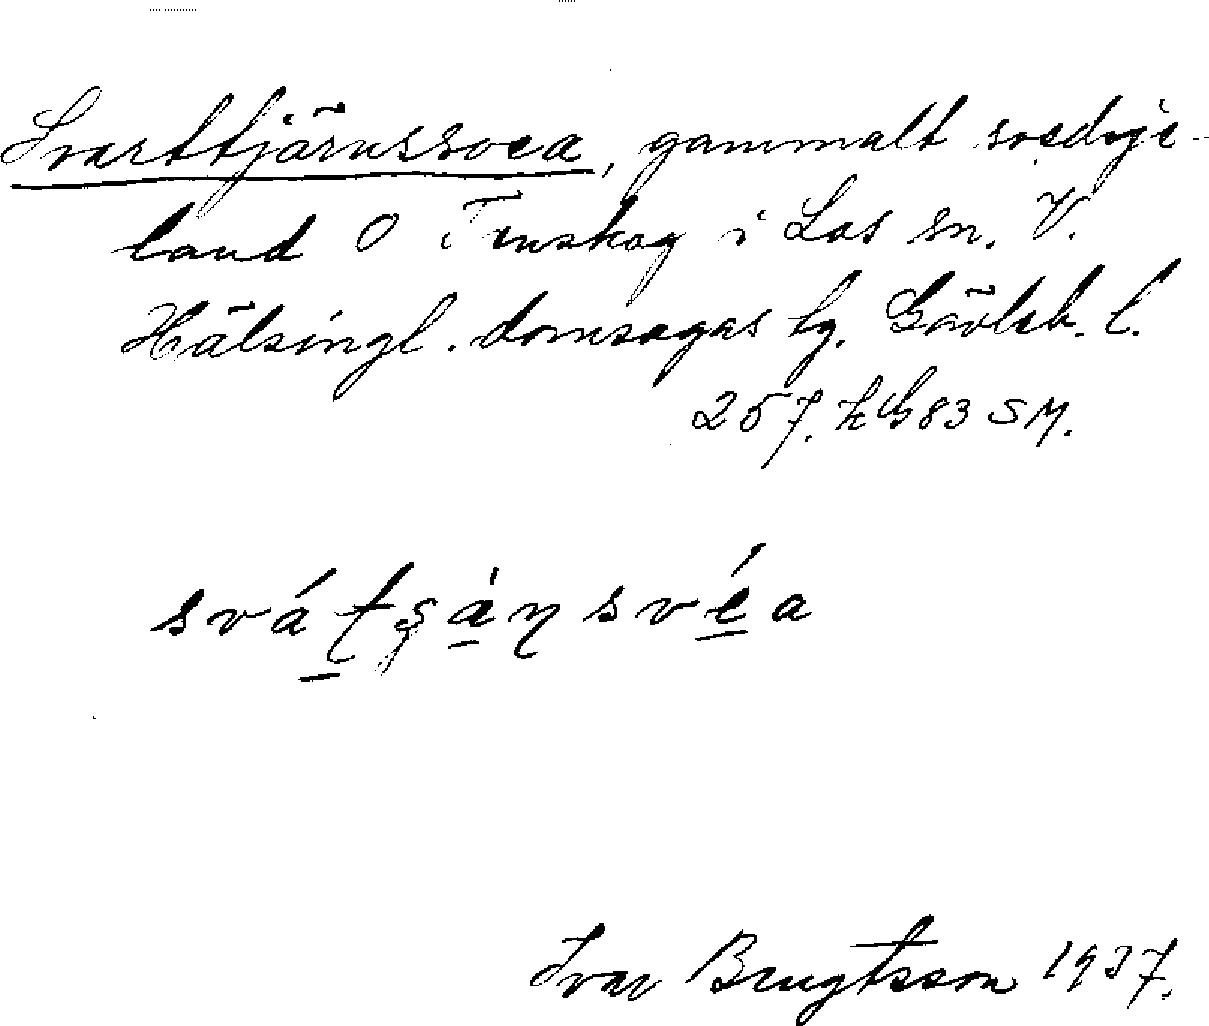 Svarttjärnssvea, gammalt svedje-
land O Tenskog i Los sn. V.
Hälsingl. domsagas tg. Gävleb. l.
257. k G 83 SM.
svátşä́ņsvéa
Ivar Bengtsson 1937.